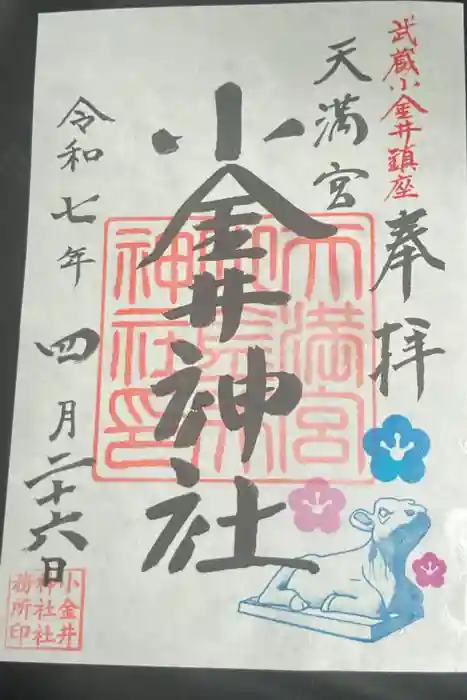 武蔵小金井鎮座
奉拝
天満宮
小金井神社
令和七年四月二十六日
天満宮
神社印
小金井
神社社
務所印